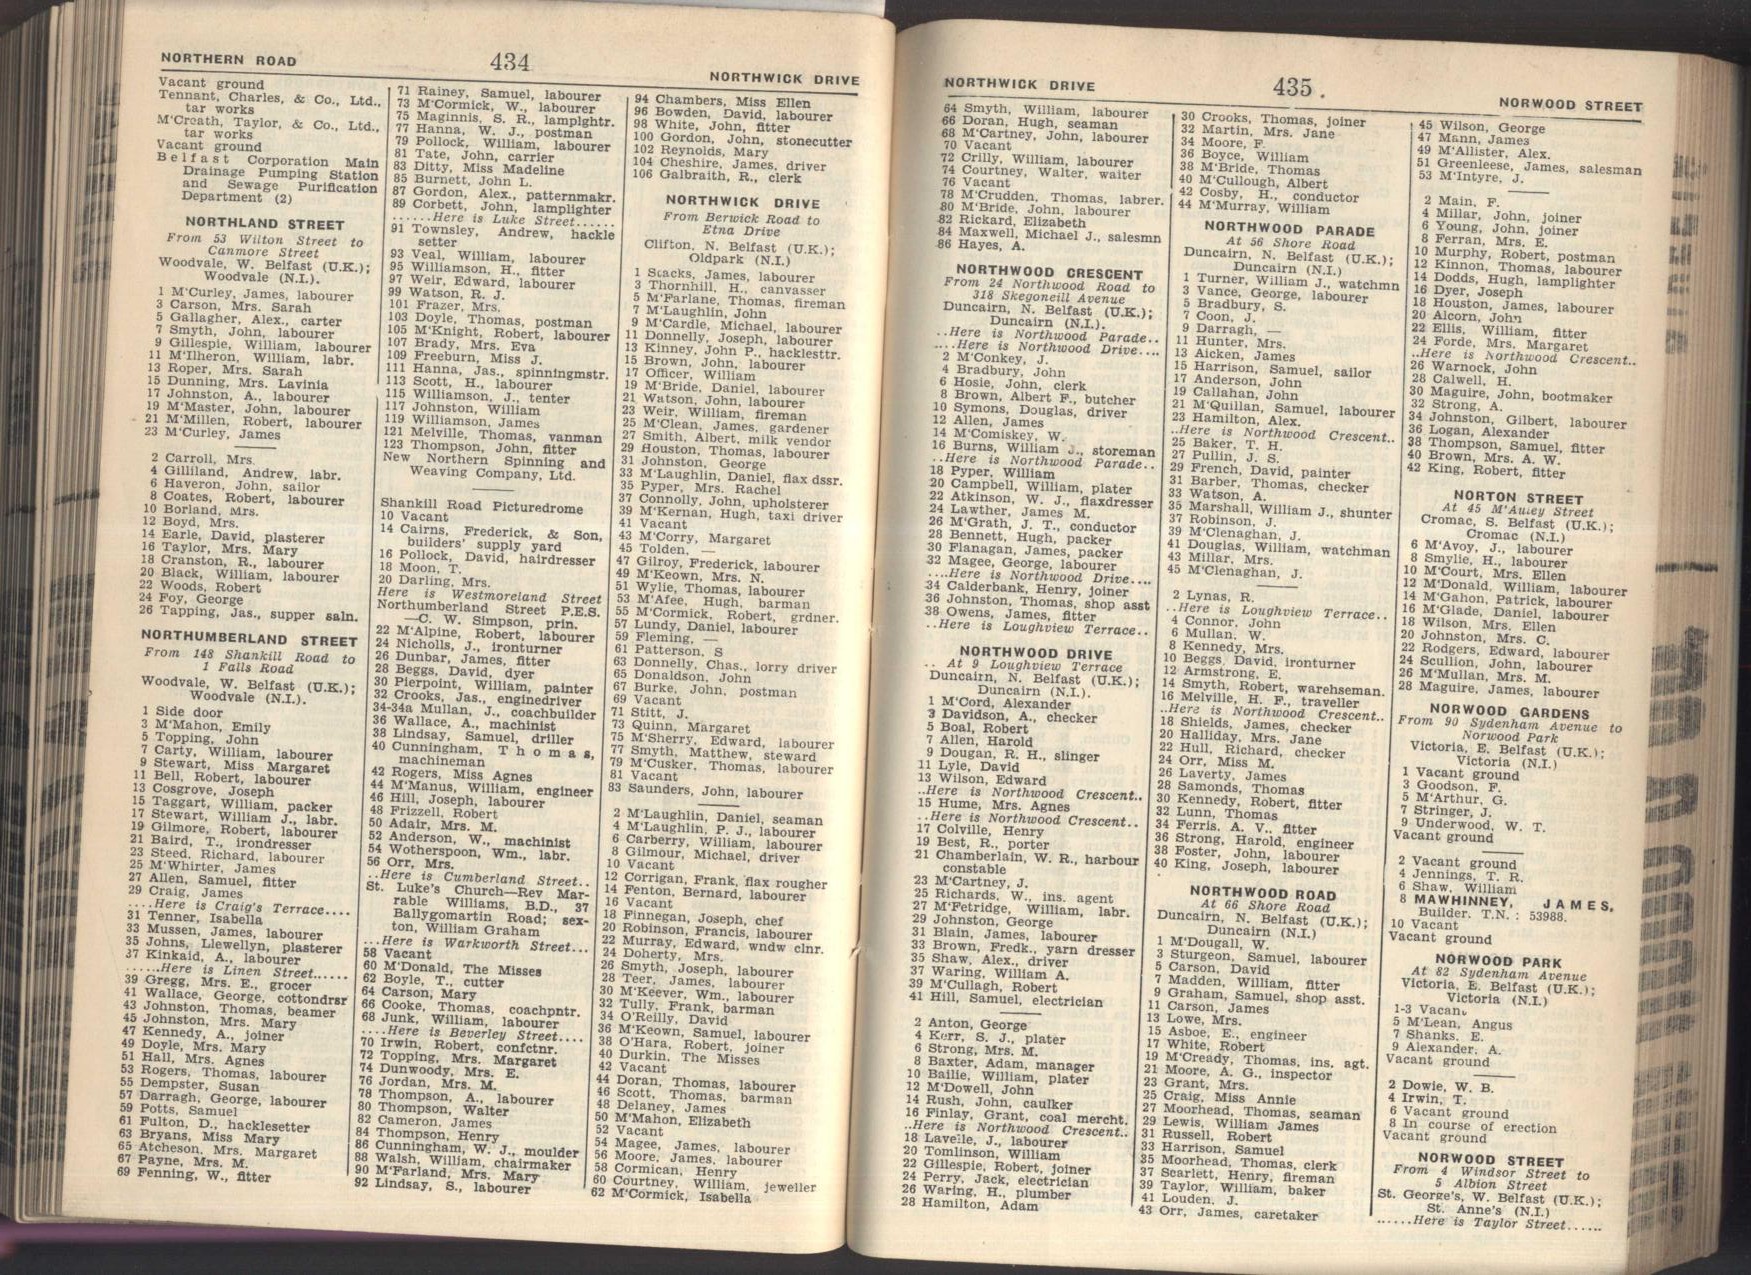 NORTHERN ROAD
434
NORTHWICK DRIVE
Vacant ground
Tennant, Charles, & Co., Ltd.,
tar works
M'Creath, Taylor, & Co., Ltd.,
tar works
Vacant ground
Belfast Corporation Main
Drainage Pumping Station
and Sewage Purification
Department (2)
NORTHLAND STREET
From 53 Wilton Street to
Canmore Street
Woodvale, W. Belfast (U.K.);
Woodvale (N.I.).
1 M'Curley, James, labourer
3 Carson, Mrs. Sarah
5 Gallagher, Alex., carter
7 Smyth, John, labourer
9 Gillespie, William, labourer
11 M'Ilheron, William, labr.
13 Roper, Mrs. Sarah
15 Dunning, Mrs. Lavinia
17 Johnston, A., labourer
19 M'Master, John, labourer
21 M'Millen, Robert, labourer
23 M'Curley, James
2 Carroll, Mrs.
4 Gilliland, Andrew, labr.
6 Haveron, John, sailor
8 Coates, Robert, labourer
10 Borland, Mrs.
12 Boyd, Mrs.
14 Earle, David, plasterer
16 Taylor, Mrs. Mary
18 Cranston, R., labourer
20 Black, William, labourer
22 Woods, Robert
24 Foy, George
26 Tapping, Jas., supper saln.
NORTHUMBERLAND STREET
From 148 Shankill Road to
1 Falls Road
Woodvale, W. Belfast (U.K.);
Woodvale (N.I.).
1 Side door
3 M'Mahon, Emily
5 Topping, John
7 Carty, William, labourer
9 Stewart, Miss Margaret
11 Bell, Robert, labourer
13 Cosgrove, Joseph
15 Taggart, William, packer
17 Stewart, William J., labr.
19 Gilmore, Robert, labourer
21 Baird, T., irondresser
23 Steed, Richard, labourer
25 M'Whirter, James
27 Allen, Samuel, fitter
29 Craig, James
....Here is Craig's Terrace....
31 Tenner, Isabella
33 Mussen, James, labourer
35 Johns, Llewellyn, plasterer
37 Kinkaid, A., labourer
......Here is Linen Street......
39 Gregg, Mrs. E., grocer
41 Wallace, George, cottondrsr
43 Johnston, Thomas, beamer
45 Johnston, Mrs. Mary
47 Kennedy, A., joiner
49 Doyle, Mrs. Mary
51 Hall, Mrs. Agnes
53 Rogers, Thomas, labourer
55 Dempster, Susan
57 Darragh, George, labourer
59 Potts, Samuel
61 Fulton, D., hacklesetter
63 Bryans, Miss Mary
65 Atcheson, Mrs. Margaret
67 Payne, Mrs. M.
69 Fenning, W., fitter
71 Rainey, Samuel, labourer
73 M'Cormick, W., labourer
75 Maginnis, S. R., lamplghtr.
77 Hanna, W. J., postman
79 Pollock, William, labourer
81 Tate, John, carrier
83 Ditty, Miss Madeline
85 Burnett, John L.
87 Gordon, Alex., patternmakr.
89 Corbett, John, lamplighter
......Here is Luke Street......
91 Townsley, Andrew, hackle
setter
93 Veal, William, labourer
95 Williamson, H., fitter
97 Weir, Edward, labourer
99 Watson, R. J.
101 Frazer, Mrs.
103 Doyle, Thomas, postman
105 M'Knight, Robert, labourer
107 Brady, Mrs. Eva
109 Freeburn, Miss J.
111 Hanna, Jas., spinningmstr.
113 Scott, H., labourer
115 Williamson, J., tenter
117 Johnston, William
119 Williamson, James
121 Melville, Thomas, vanman
123 Thompson, John, fitter
New Northern Spinning and
Weaving Company, Ltd.
Shankill Road Picturedrome
10 Vacant
14 Cairns, Frederick, & Son,
builders' supply yard
16 Pollock, David, hairdresser
18 Moon, T.
20 Darling, Mrs.
Here is Westmoreland Street
Northumberland Street P.E.S.
—C. W. Simpson, prin.
22 M'Alpine, Robert, labourer
24 Nicholls, J., ironturner
26 Dunbar, James, fitter
28 Beggs, David, dyer
30 Pierpoint, William, painter
32 Crooks, Jas., enginedriver
34-34a Mullan, J., coachbuilder
36 Wallace, A., machinist
38 Lindsay, Samuel, driller
40 Cunningham, Thomas,
machineman
42 Rogers, Miss Agnes
44 M'Manus, William, engineer
46 Hill, Joseph, labourer
48 Frizzell, Robert
50 Adair, Mrs. M.
52 Anderson, W., machinist
54 Wotherspoon, Wm., labr.
56 Orr, Mrs.
..Here is Cumberland Street..
St. Luke's Church—Rev Mar-
rable Williams, B.D., 37
Ballygomartin Road; sex-
ton, William Graham
...Here is Warkworth Street...
58 Vacant
60 M'Donald, The Misses
62 Boyle, T., cutter
64 Carson, Mary
66 Cooke, Thomas, coachpntr.
68 Junk, William, labourer
....Here is Beverley Street....
70 Irwin, Robert, confctnr.
72 Topping, Mrs. Margaret
74 Dunwoody, Mrs. E.
76 Jordan, Mrs. M.
78 Thompson, A., labourer
80 Thompson, Walter
82 Cameron, James
84 Thompson, Henry
86 Cunningham, W. J., moulder
88 Walsh, William, chairmaker
90 M'Farland, Mrs. Mary
92 Lindsay, S., labourer
94 Chambers, Miss Ellen
96 Bowden, David, labourer
98 White, John, fitter
100 Gordon, John, stonecutter
102 Reynolds, Mary
104 Cheshire, James, driver
106 Galbraith, R., clerk
NORTHWICK DRIVE
From Berwick Road to
Etna Drive
Clifton, N. Belfast (U.K.);
Oldpark (N.I.)
1 Stacks, James, labourer
3 Thornhill, H., canvasser
5 M'Farlane, Thomas, fireman
7 M'Laughlin, John
9 M'Cardle, Michael, labourer
11 Donnelly, Joseph, labourer
13 Kinney, John P., hacklesttr.
15 Brown, John, labourer
17 Officer, William
19 M'Bride, Daniel, labourer
21 Watson, John, labourer
23 Weir, William, fireman
25 M'Clean, James, gardener
27 Smith, Albert, milk vendor
29 Houston, Thomas, labourer
31 Johnston, George
33 M'Laughlin, Daniel, flax dssr.
35 Pyper, Mrs. Rachel
37 Connolly, John, upholsterer
39 M'Kernan, Hugh, taxi driver
41 Vacant
43 M'Corry, Margaret
45 Tolden, —
47 Gilroy, Frederick, labourer
49 M'Keown, Mrs. N.
51 Wylie, Thomas, labourer
53 M'Afee, Hugh, barman
55 M'Cormick, Robert, grdner.
57 Lundy, Daniel, labourer
59 Fleming, —
61 Patterson, S
63 Donnelly, Chas., lorry driver
65 Donaldson, John
67 Burke, John, postman
69 Vacant
71 Stitt, J.
73 Quinn, Margaret
75 M'Sherry, Edward, labourer
77 Smyth, Matthew, steward
79 M'Cusker, Thomas, labourer
81 Vacant
83 Saunders, John, labourer
2 M'Laughlin, Daniel, seaman
4 M'Laughlin, P. J., labourer
6 Carberry, William, labourer
8 Gilmour, Michael, driver
10 Vacant
12 Corrigan, Frank, flax rougher
14 Fenton, Bernard, labourer
16 Vacant
18 Finnegan, Joseph, chef
20 Robinson, Francis, labourer
22 Murray, Edward, wndw clnr.
24 Doherty, Mrs.
26 Smyth, Joseph, labourer
28 Teer, James, labourer
30 M'Keever, Wm., labourer
32 Tully, Frank, barman
34 O'Reilly, David
36 M'Keown, Samuel, labourer
38 O'Hara, Robert, joiner
40 Durkin, The Misses
42 Vacant
44 Doran, Thomas, labourer
46 Scott, Thomas, barman
48 Delaney, James
50 M'Mahon, Elizabeth
52 Vacant
54 Magee, James, labourer
56 Moore, James, labourer
58 Cormican, Henry
60 Courtney, William, jeweller
62 M'Cormick, Isabella
NORTHWICK DRIVE
435
NORWOOD STREET
64 Smyth, William, labourer
66 Doran, Hugh, seaman
68 M'Cartney, John, labourer
70 Vacant
72 Crilly, William, labourer
74 Courtney, Walter, waiter
76 Vacant
78 M'Crudden, Thomas, labrer.
80 M'Bride, John, labourer
82 Rickard, Elizabeth
84 Maxwell, Michael J., salesmn
86 Hayes, A.
NORTHWOOD CRESCENT
From 24 Northwood Road to
318 Skegoneill Avenue
Duncairn, N. Belfast (U.K.);
Duncairn (N.I.).
..Here is Northwood Parade..
....Here is Northwood Drive....
2 M'Conkey, J.
4 Bradbury, John
6 Hosie, John, clerk
8 Brown, Albert F., butcher
10 Symons, Douglas, driver
12 Allen, James
14 M'Comiskey, W.
16 Burns, William J., storeman
..Here is Northwood Parade..
18 Pyper, William
20 Campbell, William, plater
22 Atkinson, W. J., flaxdresser
24 Lawther, James M.
26 M'Grath, J. T., conductor
28 Bennett, Hugh, packer
30 Flanagan, James, packer
32 Magee, George, labourer
....Here is Northwood Drive....
34 Calderbank, Henry, joiner
36 Johnston, Thomas, shop asst
38 Owens, James, fitter
..Here is Loughview Terrace..
NORTHWOOD DRIVE
At 9 Loughview Terrace
Duncairn, N. Belfast (U.K.);
Duncairn (N.I.).
1 M'Cord, Alexander
3 Davidson, A., checker
5 Boal, Robert
7 Allen, Harold
9 Dougan, R. H., slinger
11 Lyle, David
13 Wilson, Edward
..Here is Northwood Crescent..
15 Hume, Mrs. Agnes
..Here is Northwood Crescent..
17 Colville, Henry
19 Best, R., porter
21 Chamberlain, W. R., harbour
constable
23 M'Cartney, J.
25 Richards, W., ins. agent
27 M'Fetridge, William, labr.
29 Johnston, George
31 Blain, James, labourer
33 Brown, Fredk., yarn dresser
35 Shaw, Alex., driver
37 Waring, William A.
39 M'Cullagh, Robert
41 Hill, Samuel, electrician
2 Anton, George
4 Kerr, S. J., plater
6 Strong, Mrs. M.
8 Baxter, Adam, manager
10 Bailie, William, plater
12 M'Dowell, John
14 Rush, John, caulker
16 Finlay, Grant, coal mercht.
..Here is Northwood Crescent..
18 Lavelle, J., labourer
20 Tomlinson, William
22 Gillespie, Robert, joiner
24 Perry, Jack, electrician
26 Waring, H., plumber
28 Hamilton, Adam
30 Crooks, Thomas, joiner
32 Martin, Mrs. Jane
34 Moore, F.
36 Boyce, William
38 M'Bride, Thomas
40 M'Cullough, Albert
42 Cosby, H., conductor
44 M'Murray, William
NORTHWOOD PARADE
At 56 Shore Road
Duncairn, N. Belfast (U.K.);
Duncairn (N.I.)
1 Turner, William J., watchmn
3 Vance, George, labourer
5 Bradbury, S.
7 Coon, J.
9 Darragh, —
11 Hunter, Mrs.
13 Aicken, James
15 Harrison, Samuel, sailor
17 Anderson, John
19 Callahan, John
21 M'Quillan, Samuel, labourer
23 Hamilton, Alex.
..Here is Northwood Crescent..
25 Baker, T. H.
27 Pullin, J. S.
29 French, David, painter
31 Barber, Thomas, checker
33 Watson, A.
35 Marshall, William J., shunter
37 Robinson, J.
39 M'Clenaghan, J.
41 Douglas, William, watchman
43 Millar, Mrs.
45 M'Clenaghan, J.
2 Lynas, R.
..Here is Loughview Terrace..
4 Connor, John
6 Mullan, W.
8 Kennedy, Mrs.
10 Beggs, David, ironturner
12 Armstrong, E.
14 Smyth, Robert, warehseman.
16 Melville, H. F., traveller
..Here is Northwood Crescent..
18 Shields, James, checker
20 Halliday, Mrs. Jane
22 Hull, Richard, checker
24 Orr, Miss M.
26 Laverty, James
28 Samonds, Thomas
30 Kennedy, Robert, fitter
32 Lunn, Thomas
34 Ferris, A. V., fitter
36 Strong, Harold, engineer
38 Foster, John, labourer
40 King, Joseph, labourer
NORTHWOOD ROAD
At 66 Shore Road
Duncairn, N. Belfast (U.K.);
Duncairn (N.I.)
1 M'Dougall, W.
3 Sturgeon, Samuel, labourer
5 Carson, David
7 Madden, William, fitter
9 Graham, Samuel, shop asst.
11 Carson, James
13 Lowe, Mrs.
15 Asboe, E., engineer
17 White, Robert
19 M'Cready, Thomas, ins. agt.
21 Moore, A. G., inspector
23 Grant, Mrs.
25 Craig, Miss Annie
27 Moorhead, Thomas, seaman
29 Lewis, William James
31 Russell, Robert
33 Harrison, Samuel
35 Moorhead, Thomas, clerk
37 Scarlett, Henry, fireman
39 Taylor, William, baker
41 Louden, J.
43 Orr, James, caretaker
45 Wilson, George
47 Mann, James
49 M'Allister, Alex.
51 Greenleese, James, salesman
53 M'Intyre, J.
2 Main, F.
4 Millar, John, joiner
6 Young, John, joiner
8 Ferran, Mrs. E.
10 Murphy, Robert, postman
12 Kinnon, Thomas, labourer
14 Dodds, Hugh, lamplighter
16 Dyer, Joseph
18 Houston, James, labourer
20 Alcorn, John
22 Ellis, William, fitter
24 Forde, Mrs. Margaret
..Here is Northwood Crescent..
26 Warnock, John
28 Calwell, H.
30 Maguire, John, bootmaker
32 Strong, A.
34 Johnston, Gilbert, labourer
36 Logan, Alexander
38 Thompson, Samuel, fitter
40 Brown, Mrs. A. W.
42 King, Robert, fitter
NORTON STREET
At 45 M'Auley Street
Cromac, S. Belfast (U.K.);
Cromac (N.I.)
6 M'Avoy, J., labourer
8 Smylie, H., labourer
10 M'Court, Mrs. Ellen
12 M'Donald, William, labourer
14 M'Gahon, Patrick, labourer
16 M'Glade, Daniel, labourer
18 Wilson, Mrs. Ellen
20 Johnston, Mrs. C.
22 Rodgers, Edward, labourer
24 Scullion, John, labourer
26 M'Mullan, Mrs. M.
28 Maguire, James, labourer
NORWOOD GARDENS
From 90 Sydenham Avenue to
Norwood Park
Victoria, E. Belfast (U.K.);
Victoria (N.I.)
1 Vacant ground
3 Goodson, F.
5 M'Arthur, G.
7 Stringer, J.
9 Underwood, W. T.
Vacant ground
2 Vacant ground
4 Jennings, T. R.
6 Shaw, William
8 MAWHINNEY, JAMES,
Builder. T.N.: 53988.
10 Vacant
Vacant ground
NORWOOD PARK
At 82 Sydenham Avenue
Victoria, E. Belfast (U.K.);
Victoria (N.I.)
1-3 Vacant
5 M'Lean, Angus
7 Shanks, E.
9 Alexander, A.
Vacant ground
2 Dowie, W. B.
4 Irwin, T.
6 Vacant ground
8 In course of erection
Vacant ground
NORWOOD STREET
From 4 Windsor Street to
5 Albion Street
St. George's, W. Belfast (U.K.);
St. Anne's (N.I.)
......Here is Taylor Street......